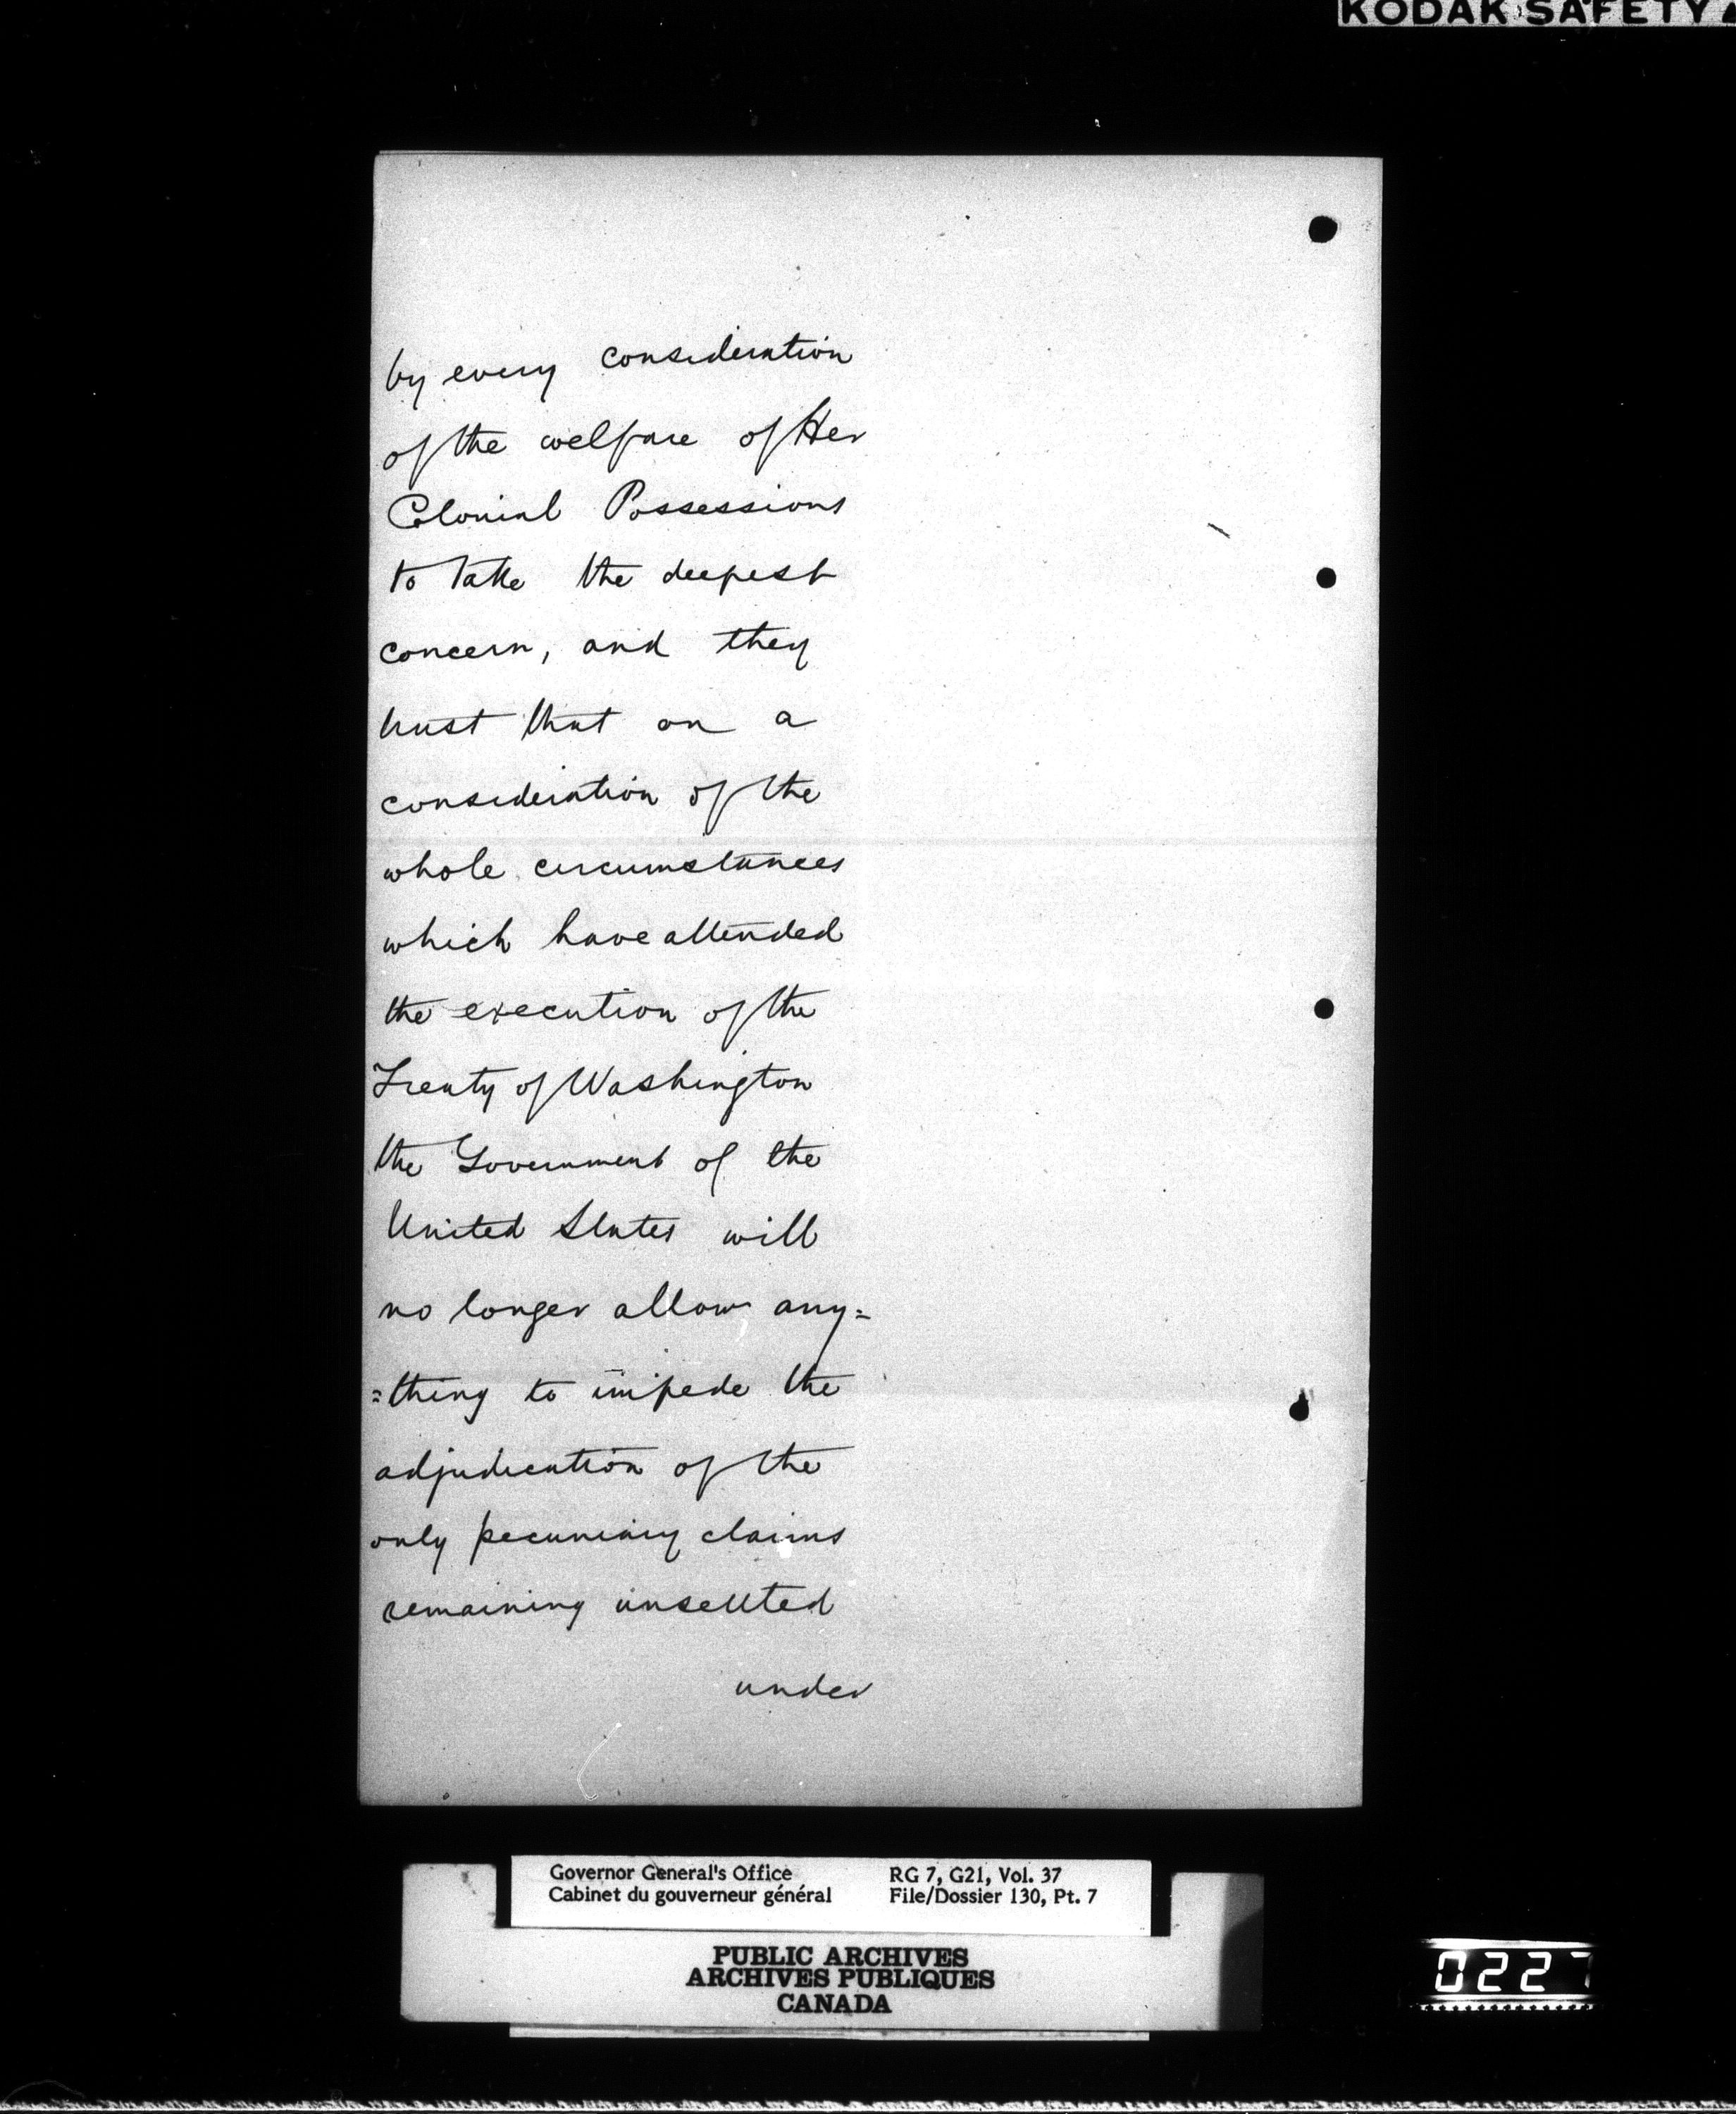 KODAK SAFETY
by every consideration
of the welfare of Her
Colonial Possessions
to take the deepest
concern, and they
trust that on a
consideration of the
whole circumstances
which have attended
the execution of the
Treaty of Washington
the Government of the
United States will
no longer allow any=
=thing to impede the
adjudication of the
only pecuniary claims
remaining unsettled
under
Governor General's Office RG 7, G21, Vol. 37
Cabinet du gouverneur général File/Dossier 130, Pt. 7
PUBLIC ARCHIVES
ARCHIVES PUBLIQUES
CANADA
0227